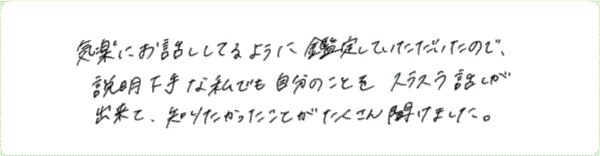 気楽にお話ししてるように鑑定していただいたので、
説明下手な私でも自分のことをスラスラ話しが
出来て、知りたかったことがたくさん聞けました。